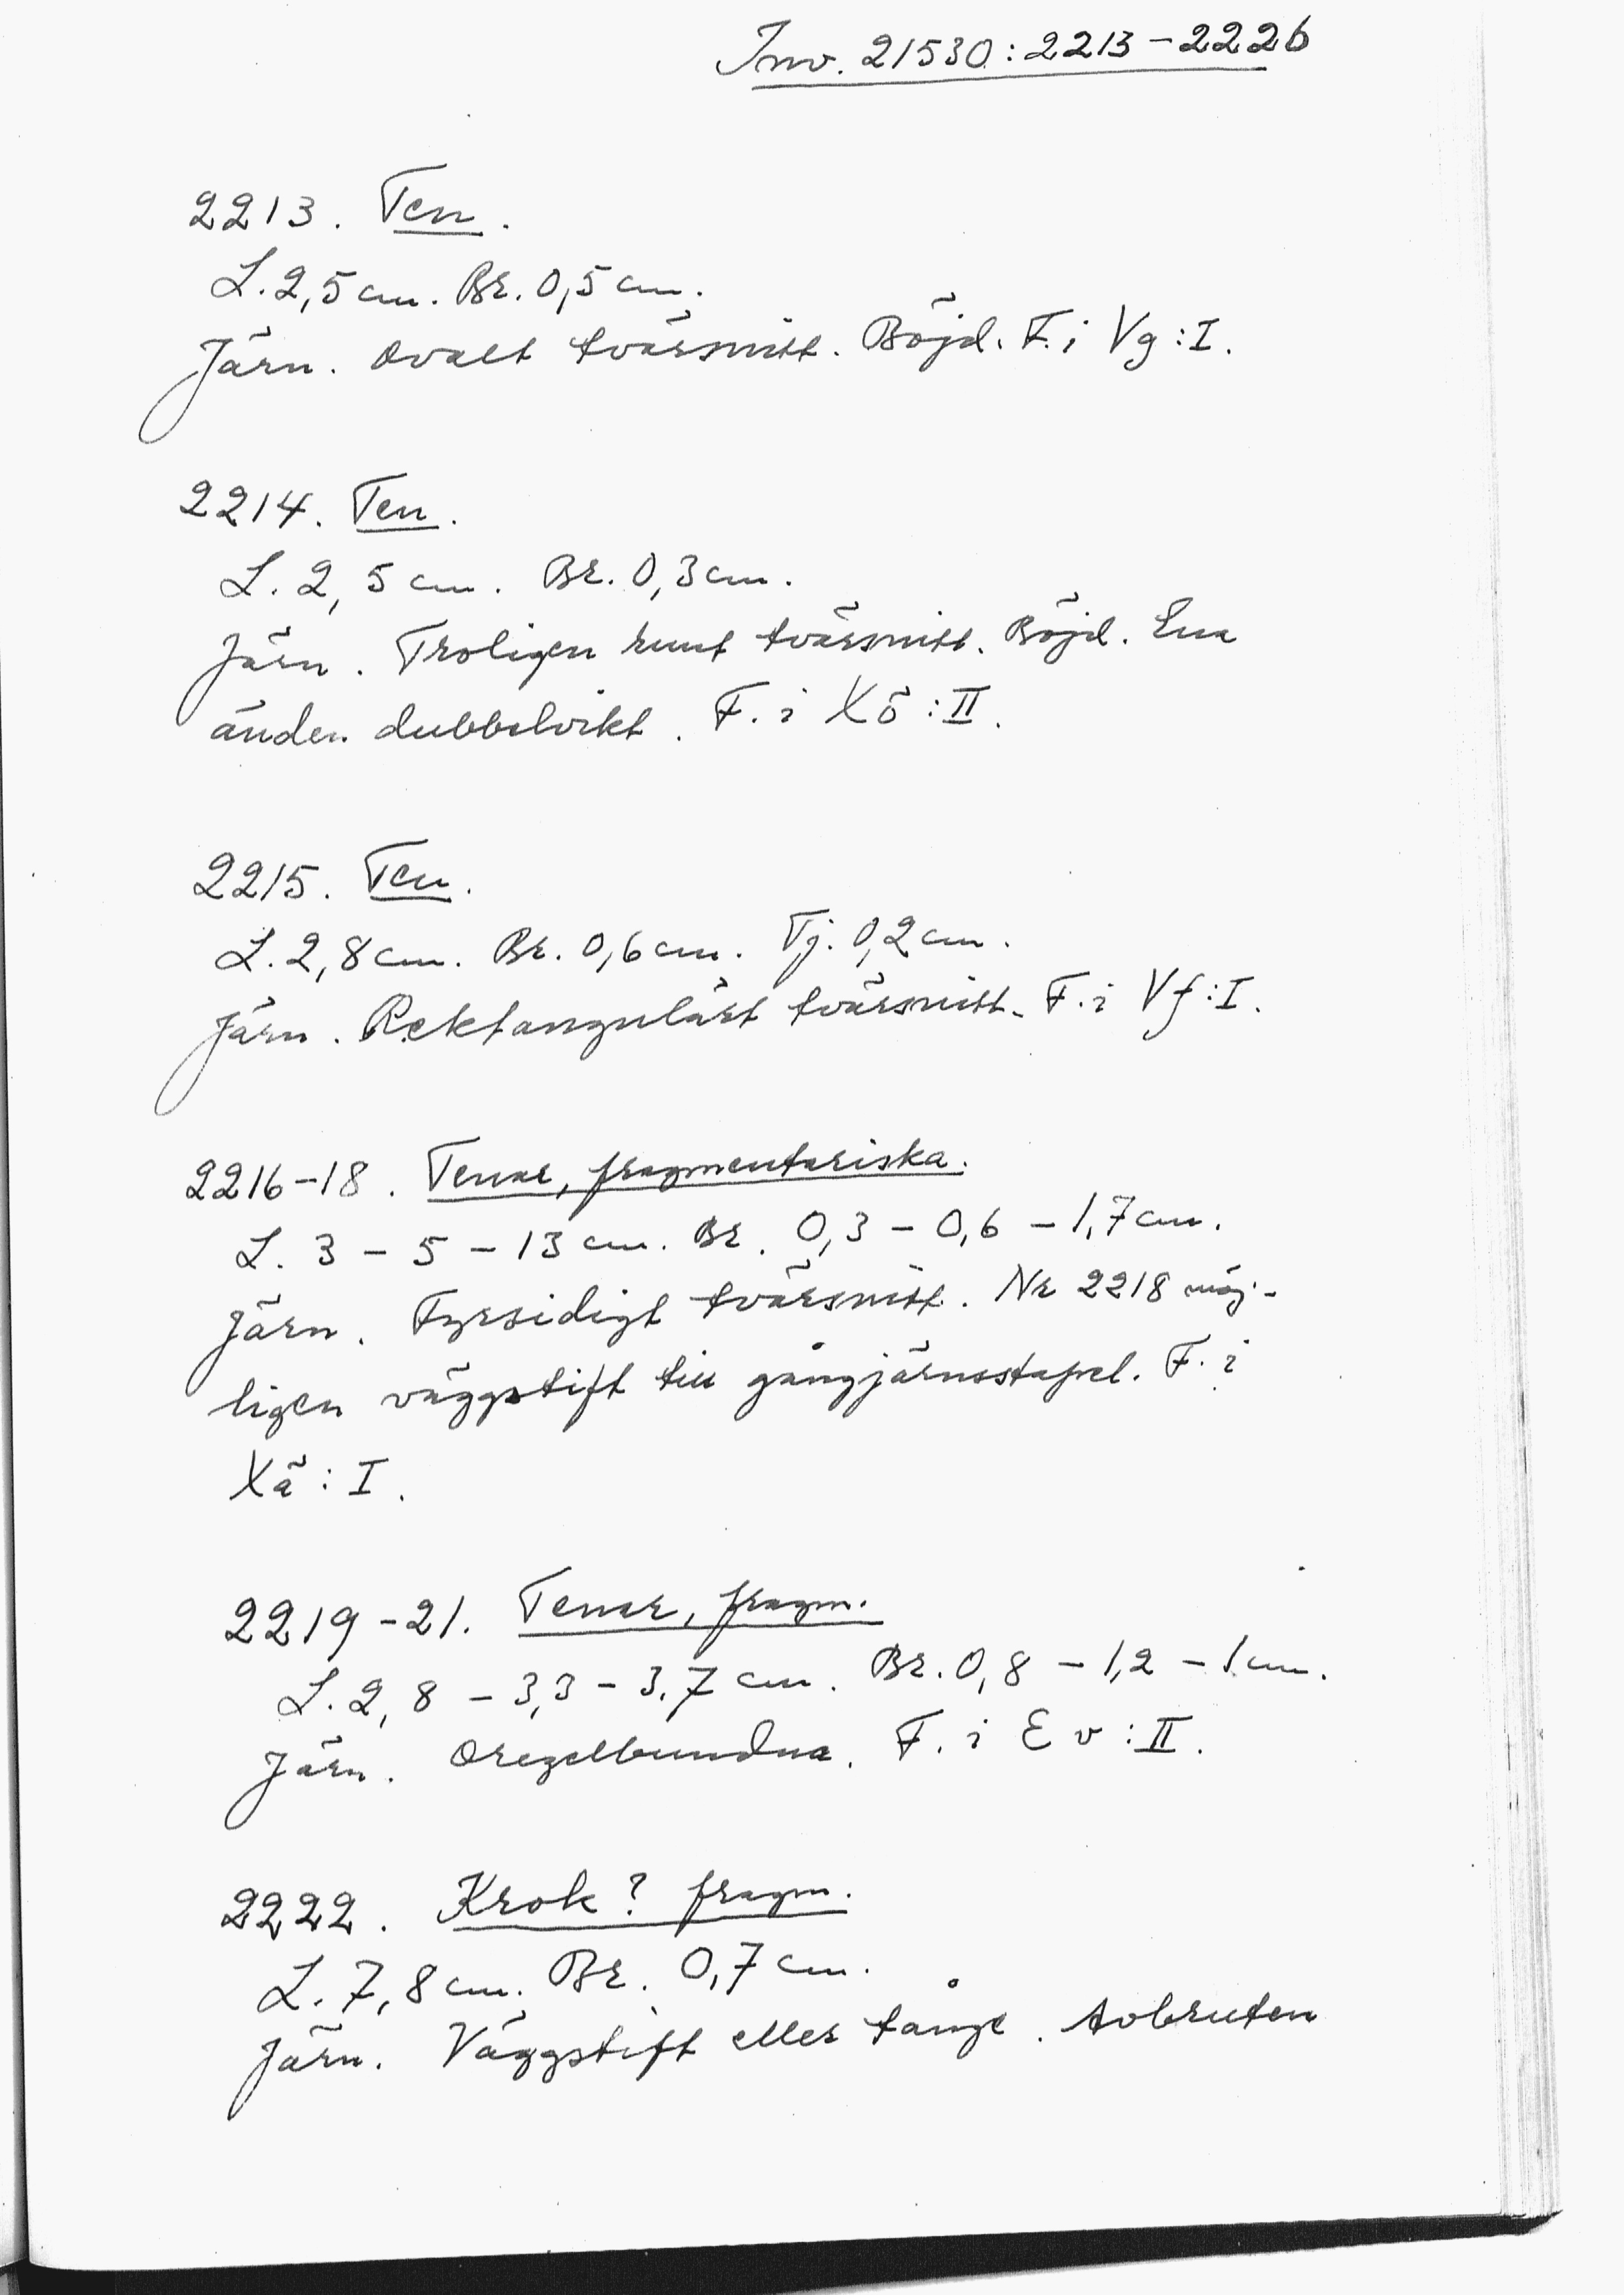 Inv. 21530:2213-2226
2213. Ten.
L. 2,5 cm. Br. 0,5 cm.
Järn. Ovalt tvärsnitt. Böjd. F. i Vg:I.
2214. Ten.
L. 2,5 cm. Br. 0,3 cm.
Järn. Troligen runt tvärsnitt. Böjd. Ena
änden dubbelvikt. F. i Xö:II.
2215. Ten.
L. 2,8 cm. Br. 0,6 cm. Tj. 0,2 cm.
Järn. Rektangulärt tvärsnitt. F. i Vf:I.
2216-18. Tenar, fragmentariska.
L. 3 - 5 - 13 cm. Br. 0,3 - 0,6 - 1,7 cm.
Järn. Fyrsidigt tvärsnitt. Nr 2218 möj-
ligen väggstift till gångjärnsstapel. F. i
Xä: I.
2219-21. Tenar, fragm.
L. 2,8 - 3,3 - 3,7 cm. Br. 0,8 - 1,2 - 1 cm.
Järn. Oregelbundna. F. i Ev:II.
2222. Krok? fragm.
L. 7,8 cm. Br. 0,7 cm.
Järn. Väggstift eller tånge. Avbruten